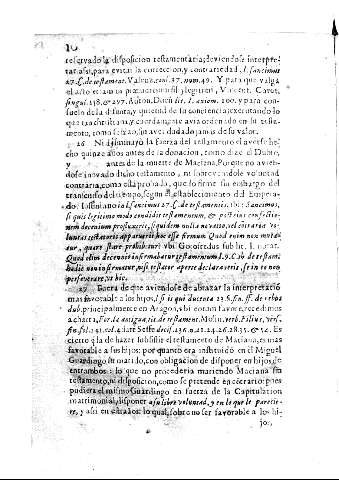 10
reservado la disposicion testamentaria; deviendose interpre-
tar assi, para evitar la correccion, y contrariedad, l. sancimus
27. C. de testament. Valenz. cons. 37. num. 49. Y para que valga
el acto etiam in præiuditium filij legitimi, Vincent. Caroc.
singul. 158. & 297. Anton. Dunus lit. A. axiom. 100. y para con-
suelo de la difunta, y quietud de la conciencia executando lo
que tan christiana, y cuerdamente avia ordenado en su testa-
mento, como se hizo, sin aver dudado jamàs de su valor.
26 Ni disminuyò la fuerça del testamento el averse he-
cho quinze años antes de la donacion, como dize el Dubio,
y antes de la muerte de Maciana. Porque no avien-
dose inovado dicho testamento, ni sobrevenidole voluntad
contraria, como està probado, quedò firme sin embargo del
transcurso del tiempo, segun el establecimiento del Empera-
dor Iustiniano in l. sancimus 27. C. de testamentis, ibi: Sancimus,
si quis legitimo modo condidit testamentum, & post eius confectio-
nem decennium profluxerit, siquidem nulla novatio, vel contraria vo-
luntas testatoris apparuerit hoc esse firmum. Quod enim non muta-
tur, quare stare prohibetur? vbi Gotofredus sub lit. I. notat.
Quod olim decennij infirmabatur testamentum l. 9. C. th. de testam.
hodie non infirmatur, nisi testator aperte declaraverit, se in eo non
perseverare, vt hic.
27 Fuera de que aviendose de abrazar la interpretaciõ
mas favorable a los hijos, l. si is qui ducenta 13. §. fin. ff. de rebus
dub. principalmente en Aragon, vbi contra favor, recedimos
a charta, For. fin. antiquus de testament. Molin. verb. Filius, vers.
fin. fol. 151. col. 4. late Sesse decis. 138. n. 21. 24. 26. 28. 35. & 52. Es
cierto q̃ la de hazer subsistir el testamento de Maciana, es mas
favorable a sus hijos: por quanto era instituido en èl Miguel
Guardingo su marido, con obligacion de disponer en hijos de
entrambos: lo que no procederia muriendo Maciana sin
testamento, ni disposicion, como se pretende en cõtrario: pues
pudiera el mismo Guardingo en fuerza de la Capitulacion
matrimonial, disponer a su libre voluntad, y en lo que le parecie-
re, y assi en estraños: lo qual, sobre no ser favorable a los hi-
jos,